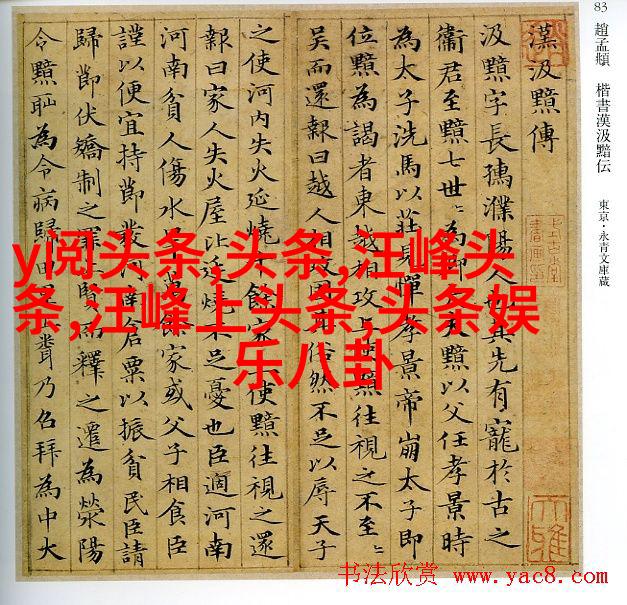 83 趙孟頫 楷書漢汲黯伝 東京・永青文庫蔵
漢汲黯傳
汲黯字長孺濮陽人也其先有寵於古之
衞君至黯七世〻為卿大夫黯以父任孝景時
為太子洗馬以莊見憚孝景帝崩太子即
位黯為謁者東越相攻上使黯往視之不至〻
吳而還報曰越人相攻固其俗然不足以辱天子
之使河内失火延燒千餘家上使黯往視之還
報曰家人失火屋比延燒不足憂也臣適河南
河南貧人傷水旱萬餘家或父子相食臣
謹以便宜持節發河南倉粟以振貧民臣請
歸節伏矯制之罪上賢而釋之遷為滎陽
令黯恥為令病歸田里乃召拜為中大
y阅头条,头条,汪峰头
条,汪峰上头条,头条娱
乐八卦
书法欣赏 www.yac8.com